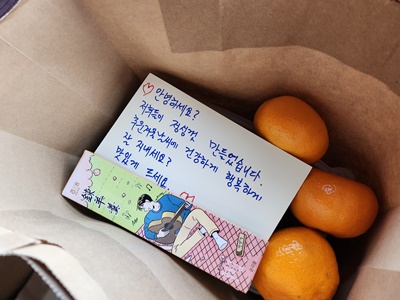 안녕하세요?
저희들이 정성껏 만들었습니다.
추운겨울날씨에 건강하게 행복하게
잘 지내세요?
맛있게 드세요